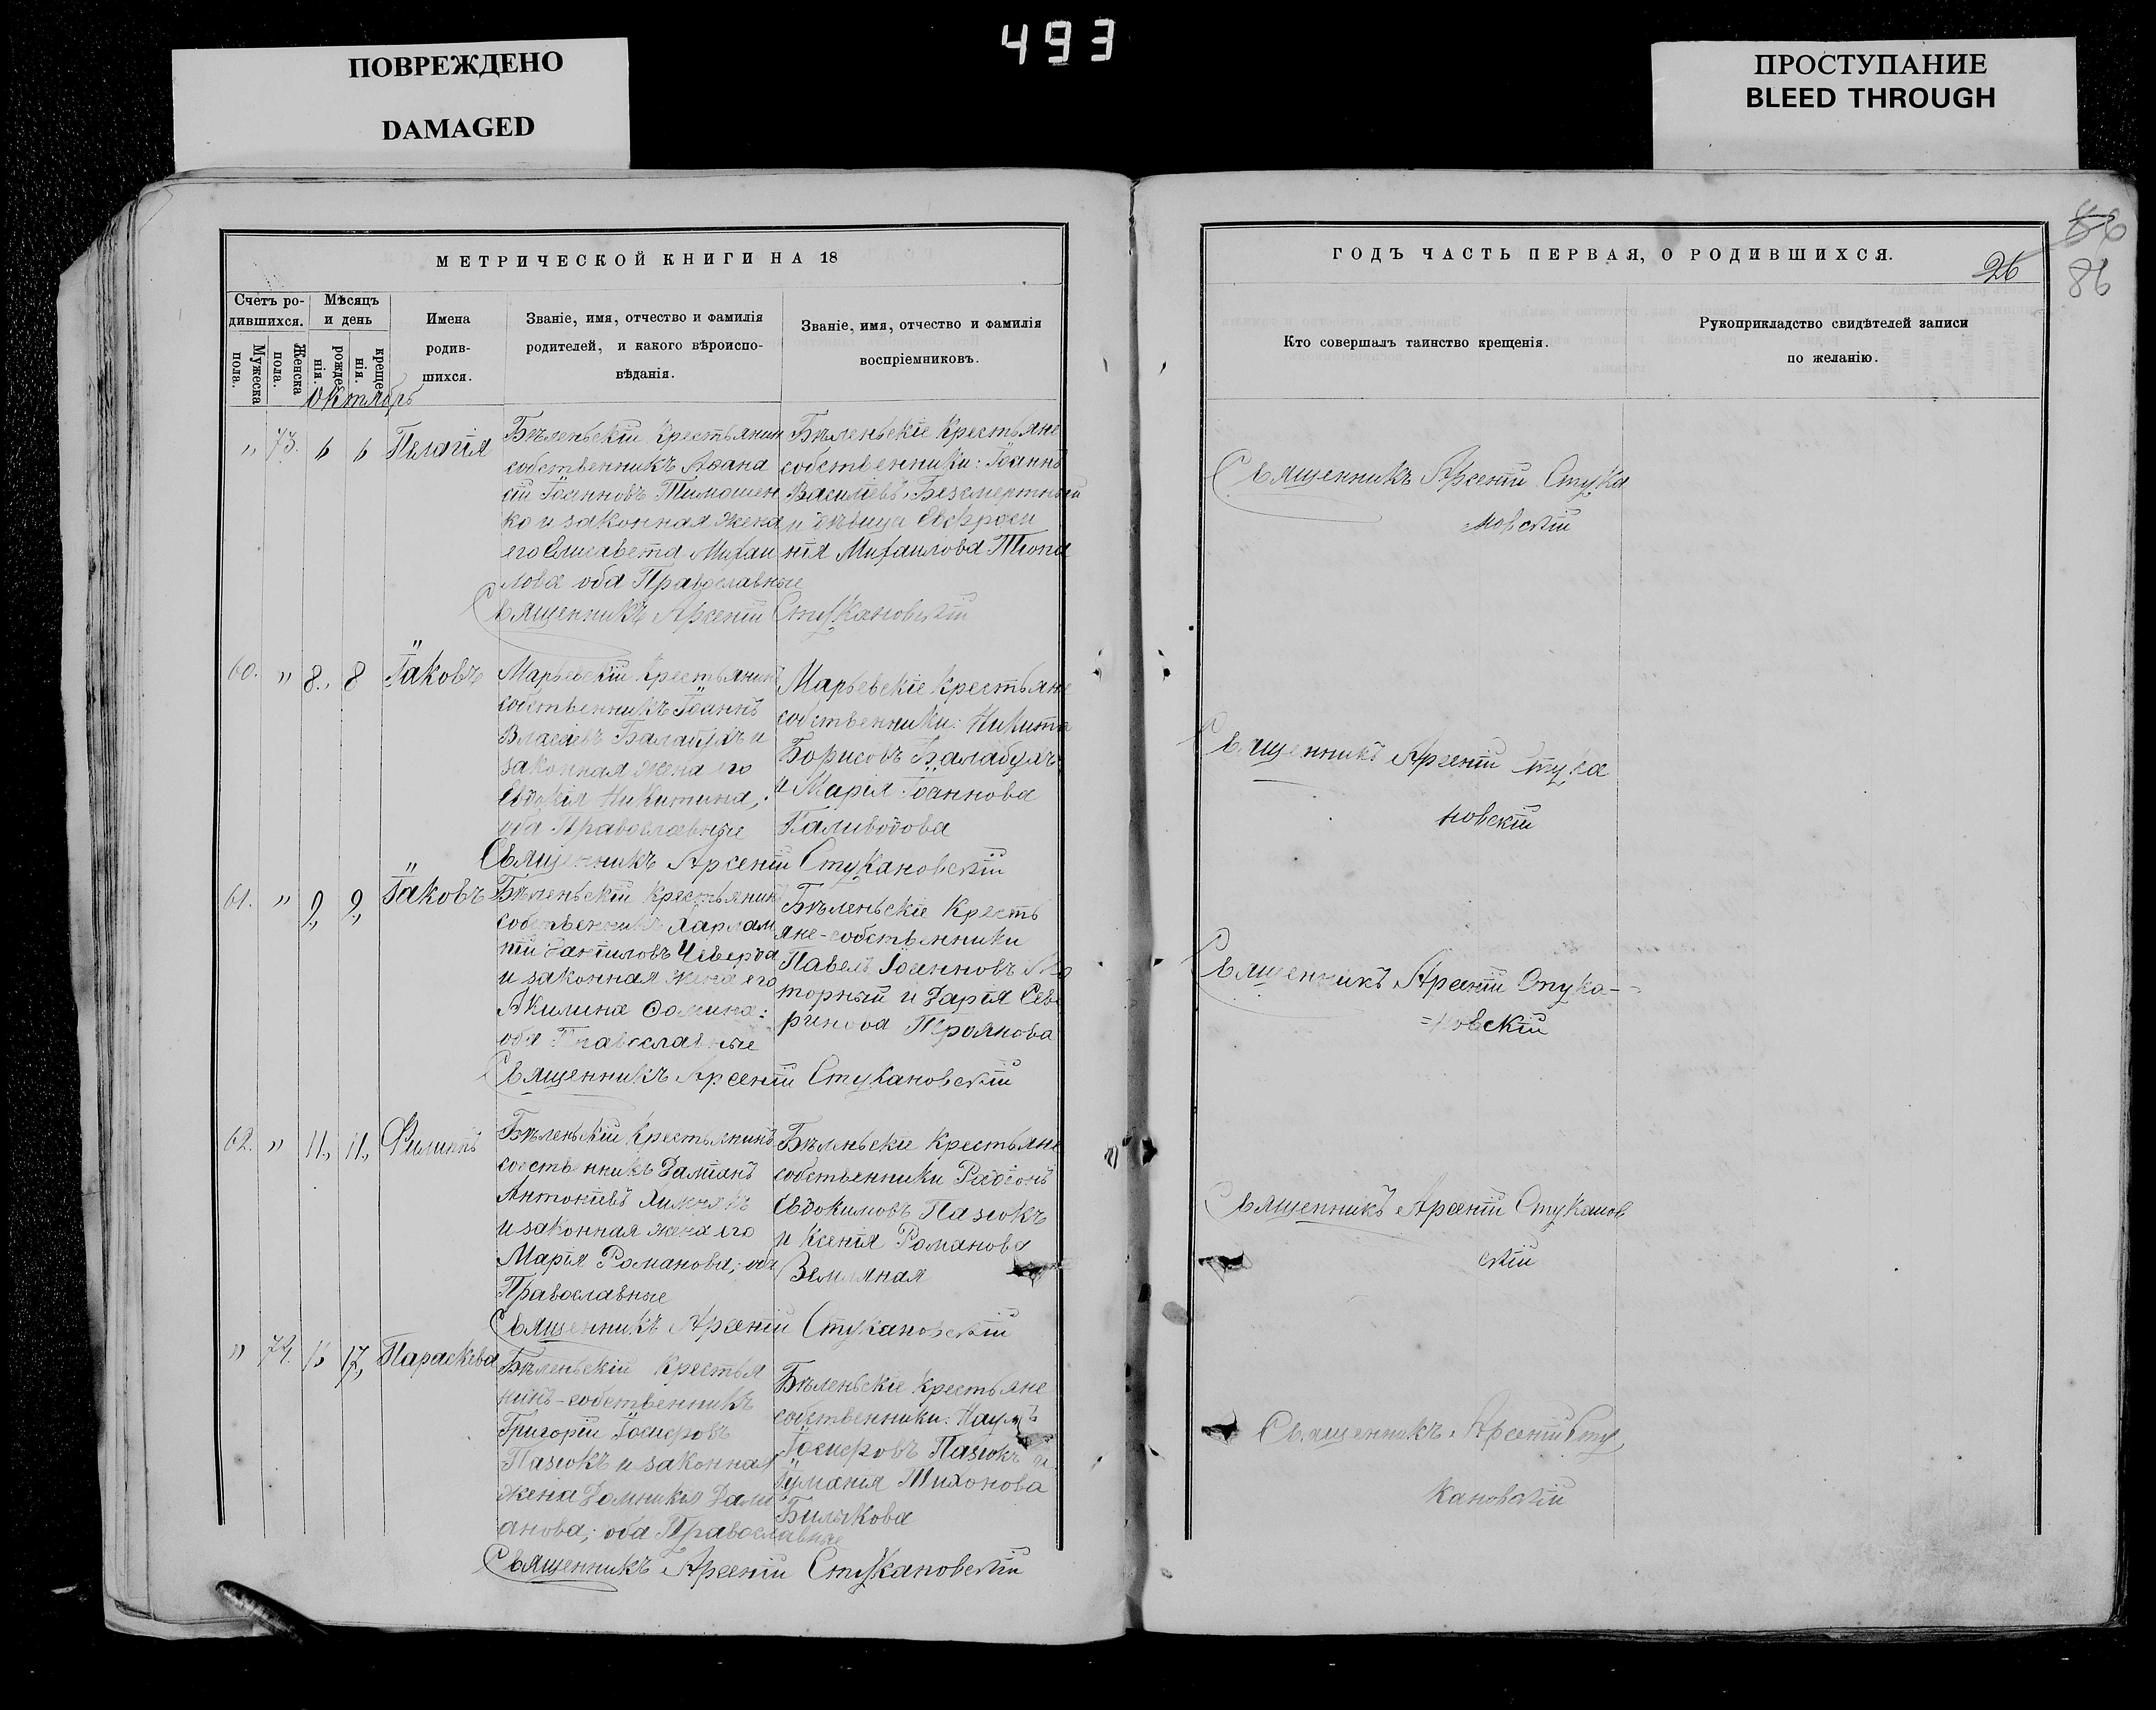 493
ПОВРЕЖДЕНО
DAMAGED
ПРОСТУПАНИЕ
BLEED THROUGH
МЕТРИЧЕСКОЙ КНИГИ НА 18
Счетъ ро-
дившихся.
Мужеска
пола.
Женска
пола.
Мѣсяцъ
и день
рожде
нія.
креще
нія.
Имена
родив-
шихся.
Званіе, имя, отчество и фамилія
родителей, и какого вѣроиспо-
вѣданія.
Званіе, имя, отчество и фамилія
воспріемниковъ.
Октябрь
„ 73. 6 6 Пелагія
Бѣленьскій крестьянин
собственникъ Аѳана
сій Іоанновъ Тимошен
ко и законная жена
его Елисавета Михаи
лова оба Православные
Бѣленьскіе крестьяне
собственники: Іоаннъ
Василіевъ Безсмертный
и дѣвица Евфроси
нія Михаилова
Священникъ Арсеній Стукановскій
60. „ 8., 8 Іаковъ
Марьевскій крестьянинъ
собственникъ Іоаннъ
Власіевъ и
законная жена его
Евдокія Никитина,
оба Православные
Марьевскіе крестьяне
собственники: Никита
Борисовъ Балабуха
и Марія Іоаннова
Каливодова
Священникъ Арсеній Стукановскій
61. „ 9., 9., Іаковъ
Бѣленьскій крестьянинъ
собственникъ Харлам
пій Даніиловъ
и законная жена его
Акилина Ѳомина:
оба Православные
Бѣленьскіе кресть
яне-собственники
Павелъ Іоанновъ
торный и Дарія Сев
ринова Троянова
Священникъ Арсеній Стукановскій
62. „ 11., 11., Филиппъ
Бѣленьскій крестьянинъ
собственникъ Даміанъ
Антоніевъ
и законная жена его
Марія Романова; оба
Православные
Бѣленьскіе крестьяне
собственники Радіонъ
Евдокимовъ Пазюкъ
и Ксенія Романова
Земляная
Священникъ Арсеній Стукановскій
„ 74. 17., Параскева
Бѣленьскій крестья
нинъ-собственникъ
Григорій Іосифовъ
Пазюкъ и законная
жена Домникія Дамі
анова; оба Православные
Бѣленьскіе крестьяне
собственники: Наумъ
Іосифовъ Пазюкъ и
Іуліанія Тихонова
Билякова
Священникъ Арсеній Стукановскій
ГОДЪ ЧАСТЬ ПЕРВАЯ, О РОДИВШИХСЯ.
26
86
Кто совершалъ таинство крещенія.
Рукоприкладство свидѣтелей записи
по желанію.
Священникъ Арсеній Стука
новскій
Священникъ Арсеній Стука
новскій
Священникъ Арсеній Стука-
=новскій
Священникъ Арсеній Стуканов
скій
Священникъ Арсеній Сту
кановскій